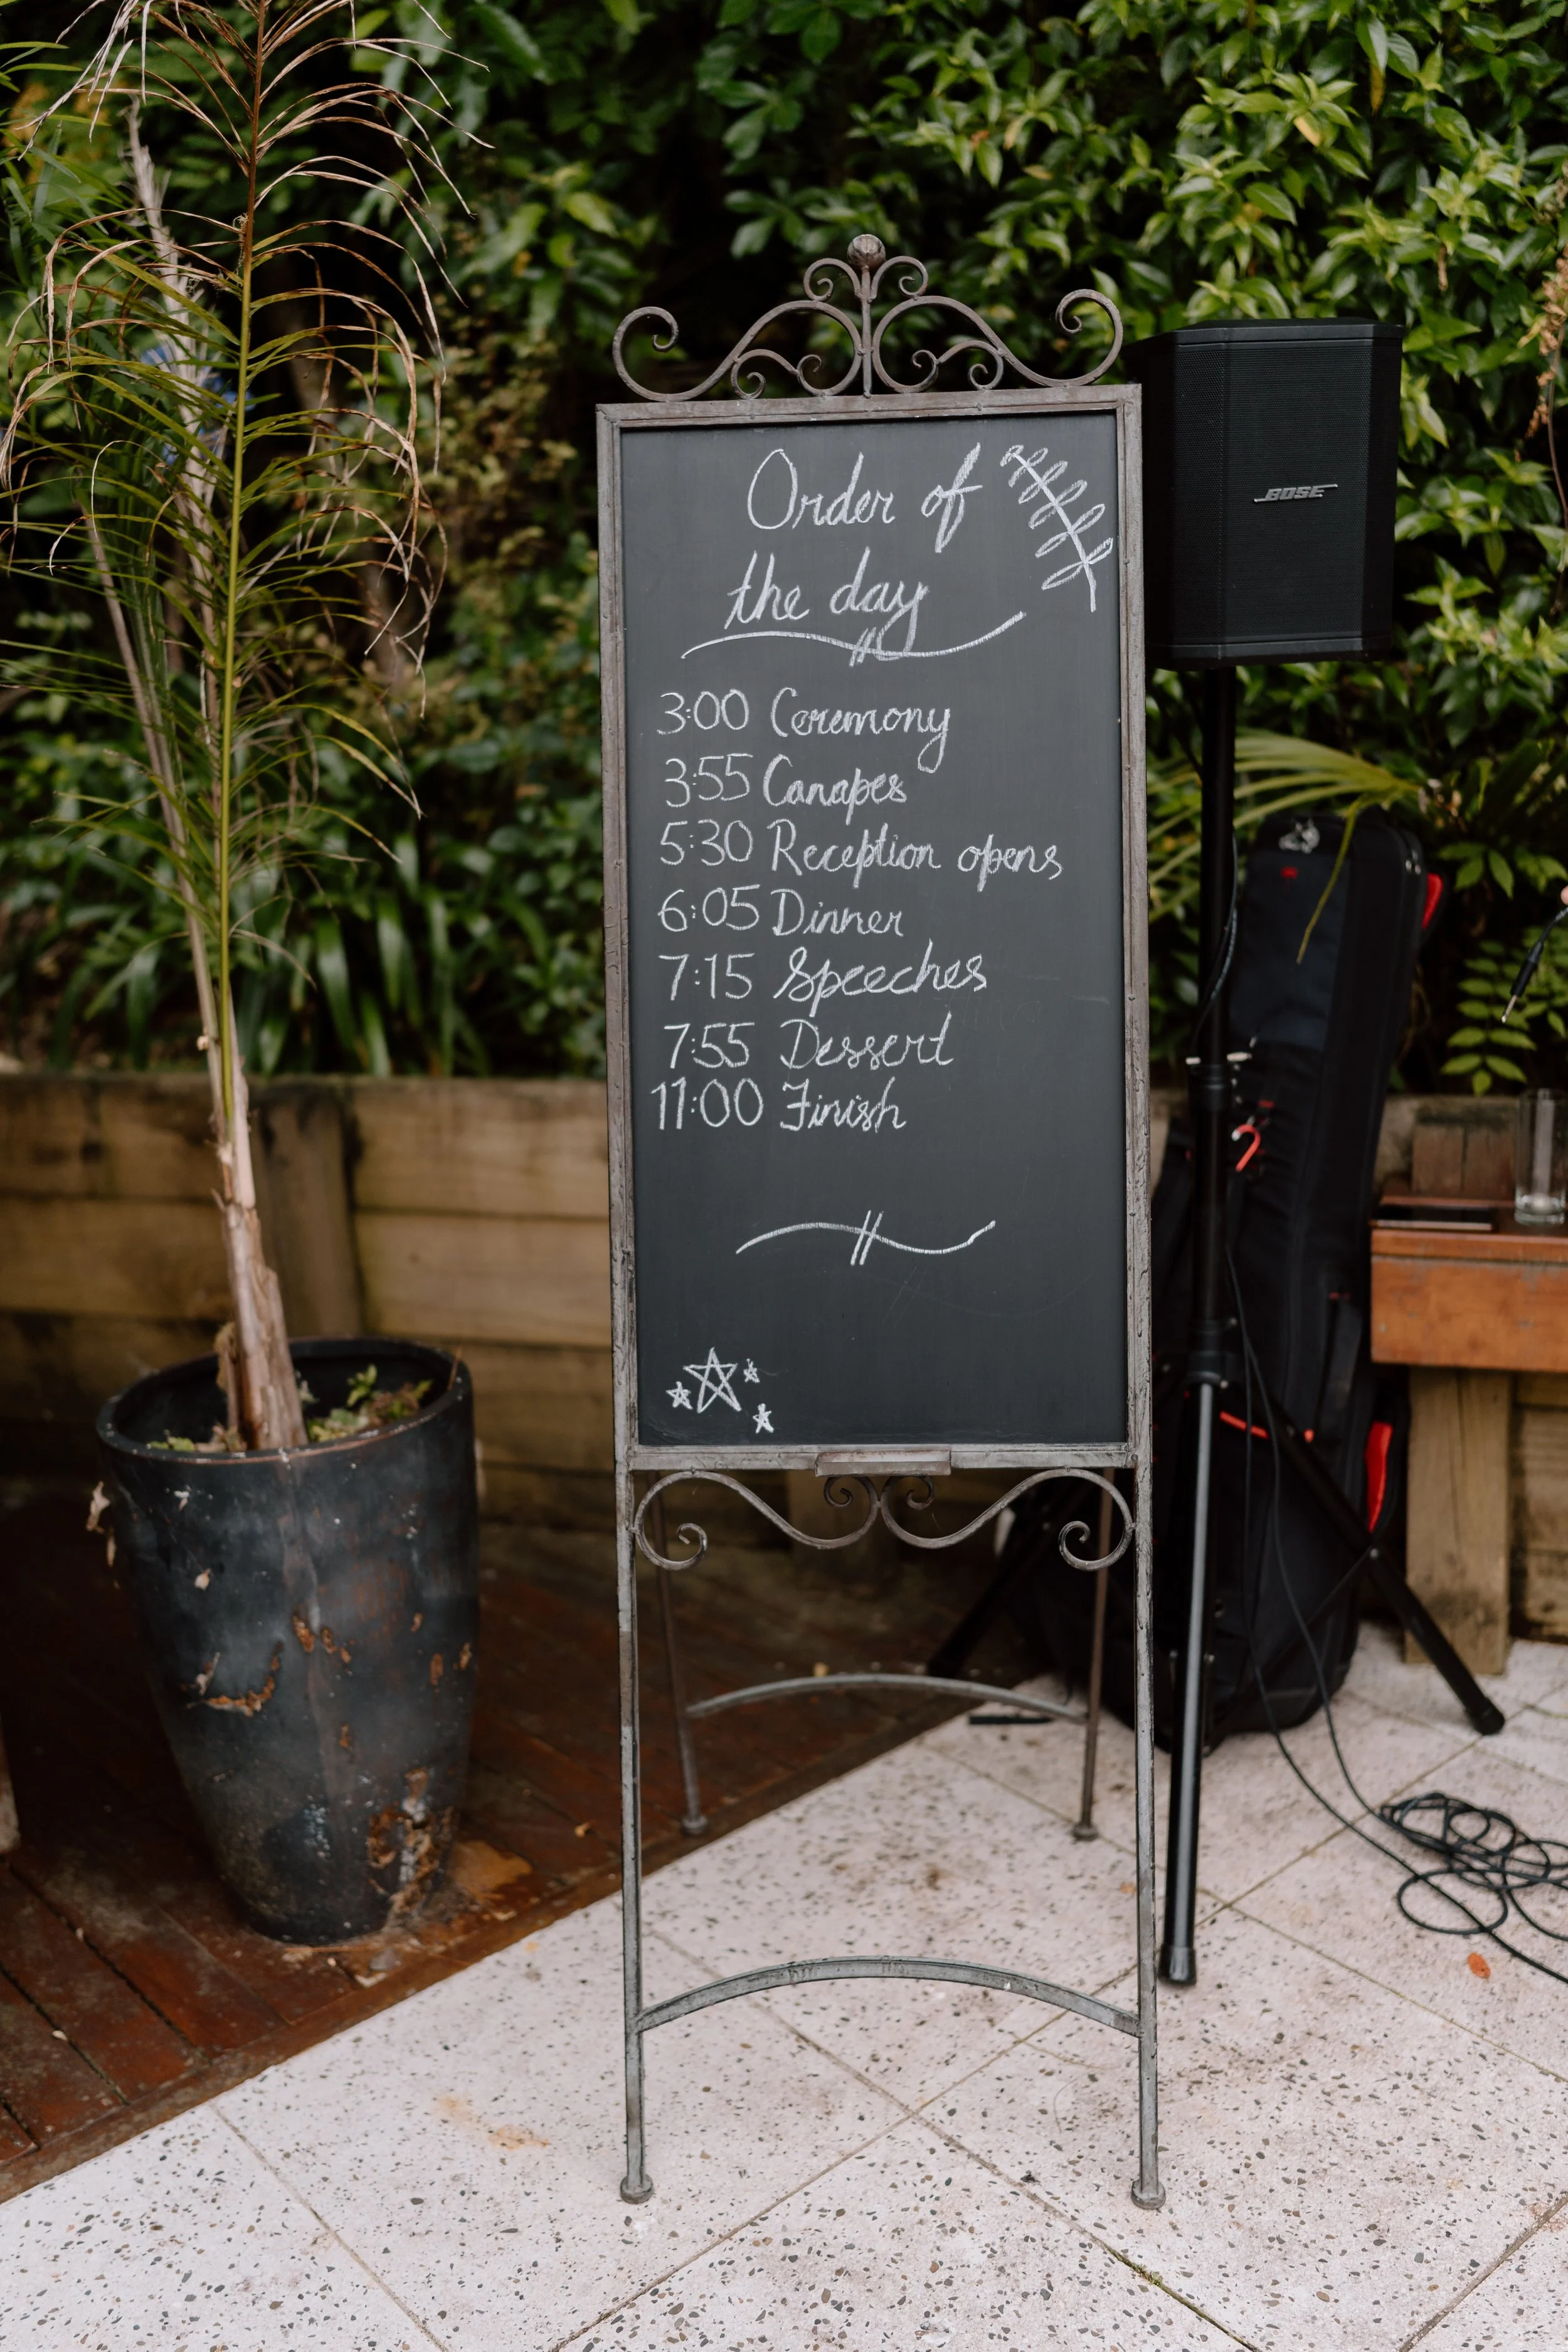 Order of
the day
3:00 Ceremony
3:55 Canapes
5:30 Reception opens
6:05 Dinner
7:15 Speeches
7:55 Dessert
11:00 Finish
BOSE